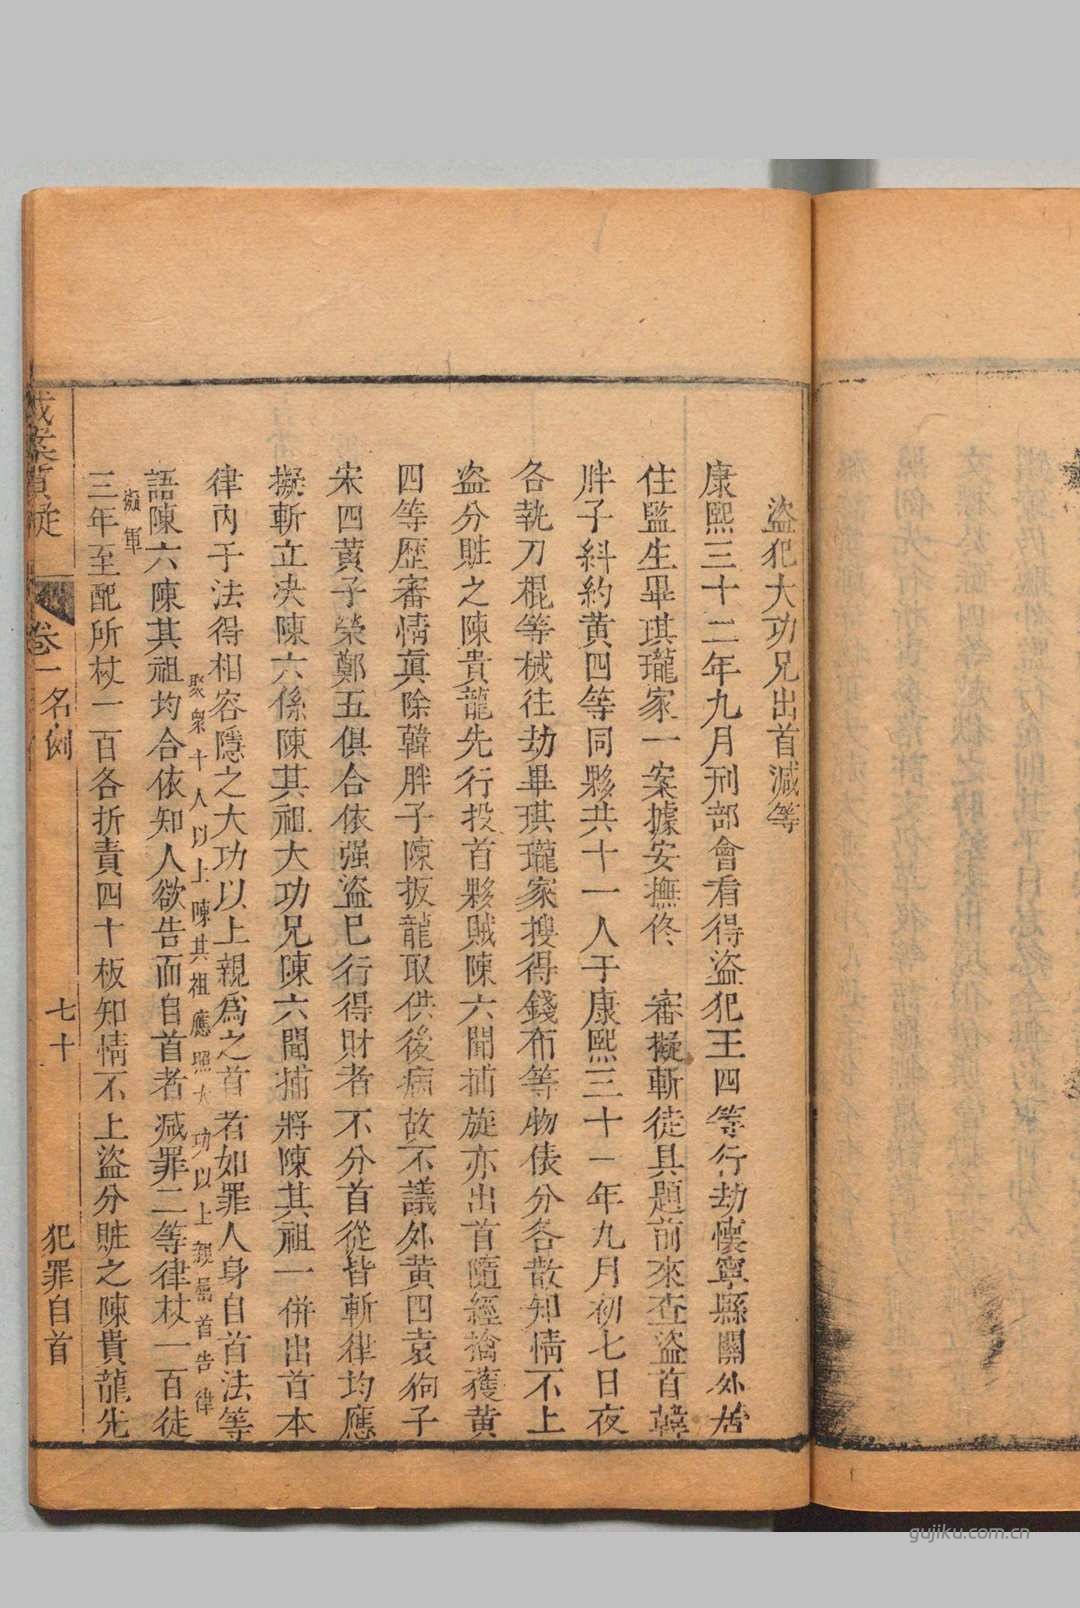 盜犯大功兄出首減等
康熙三十二年九月刑部會看得盜犯王四等行劫懷寧縣關外居
住監生畢琪瓏家一案據安撫佟　審擬斬徒具題前來查盜首韓
胖子糾約黃四等同夥共十一人于康熙三十一年九月初七日夜
各執刀棍等械往劫畢琪瓏家搜得錢布等物俵分各散知情不上
盜分賍之陳貴龍先行投首夥賊陳六聞捕旋亦出首隨經擒獲黃
四等歷審情真除韓胖子陳扳龍取供後病故不議外黃四袁狗子
宋四黃子榮鄭五俱合依强盜已行得財者不分首從皆斬律均應
擬斬立决陳六係陳其祖大功兄陳六聞捕將陳其祖一併出首本
律內于法得相容隱之大功以上親爲之首者如罪人身自首法等
聚衆十人以上陳其祖應照大功以上親屬首告律
語陳六陳其祖均合依知人欲告而自首者减罪二等律杖一百徒
擬軍
三年至配所杖一百各折責四十板知情不上盜分賍之陳貴龍先
成案質疑
卷一 名例
七十
犯罪自首
gujiku.com.cn